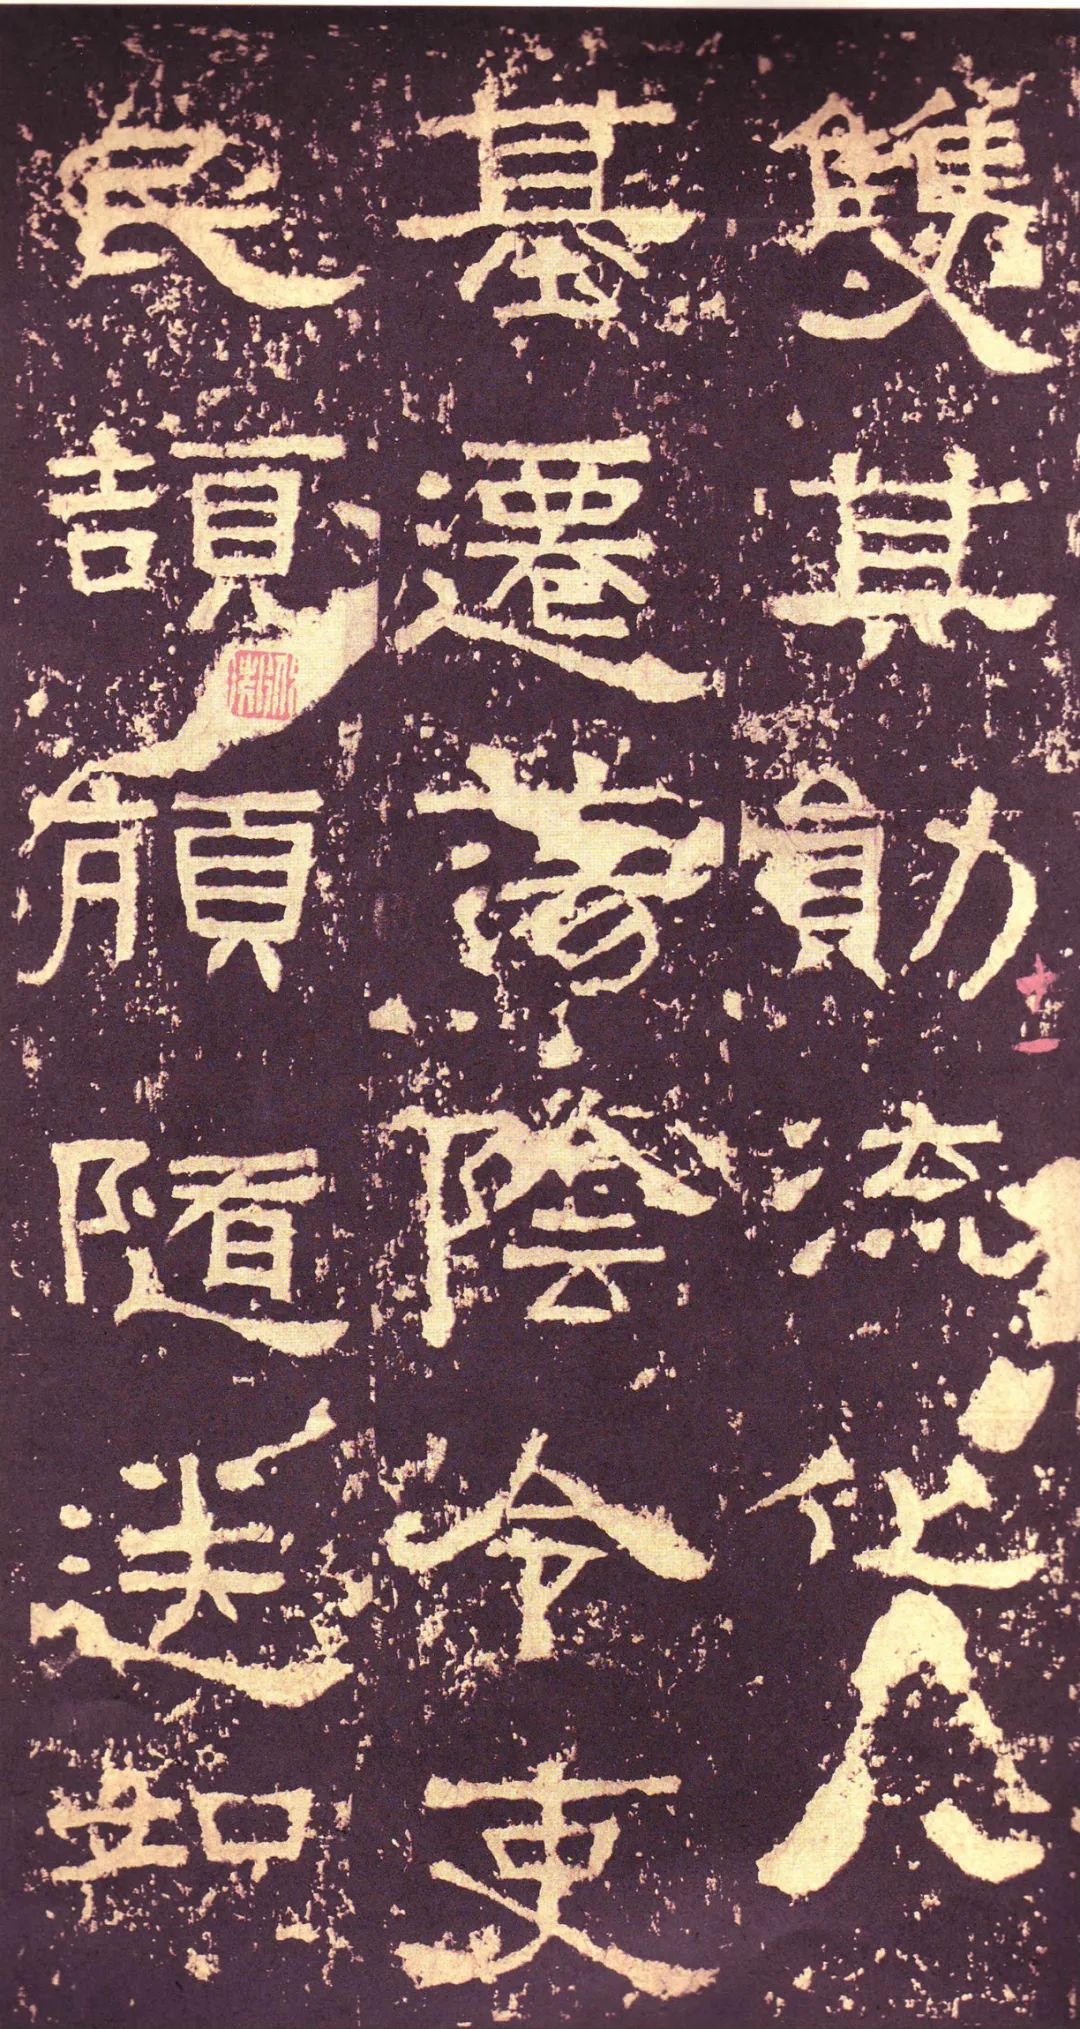 雙其勛流化八
基遷蕩陰令吏
民頡頏隨送如
十一